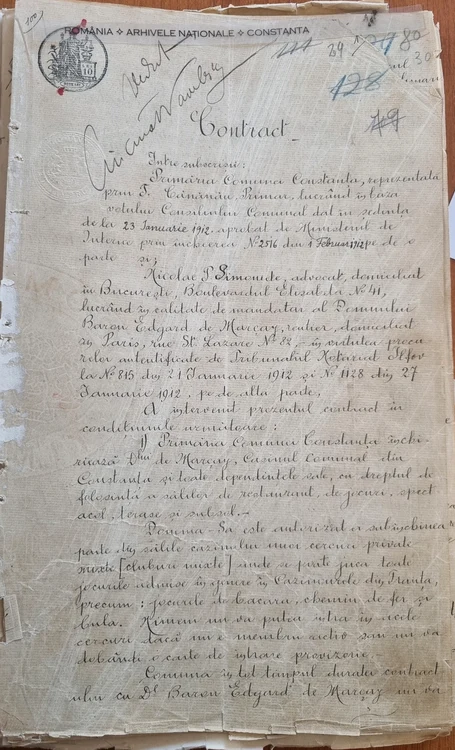 (100)
ROMÂNIA ✦ ARHIVELE NAȚIONALE ✦ CONSTANTA
10
128
Contract
Intre subscrisii:
Primăria Comunei Constanta, reprezentată
prin T. Cănănău, Primar, lucrând în baza
votului Consiliului Comunal dat în sedinta
de la 23 Ianuarie 1912, aprobat de Ministerul de
Interne prin incheierea No 2516 din 1 Februarie 1912 pe de o
parte si;
Nicolae P. Simonide, advocat, domiciliat
în Bucuresti, Boulevardul Elisabeta No 41,
lucrând în calitate de mandatar al Domnului
Baron Edgard de Marçay, rentier, domiciliat
în Paris, rue St. Lazare No 82, în virtutea procu-
relor autentificate de Tribunalul Notariat Ilfov
la No 815 din 21 Ianuarie 1912 si No 1128 din 27
Ianuarie 1912, pe de alta parte,
A intervenit prezentul contract în
conditiunile următoare:
1) Primăria Comunei Constanta închi-
riază Dlui de Marçay, Casinul Comunal din
Constanta si toate dependintele sale, cu dreptul de
folosintă a sălilor de restaurant, de jocuri, spect
acol, terase si subsol.-
Domnia-Sa este autorizat a subînchirea
parte din sălile cazinului unor cercuri private
mixte [cluburi mixte] unde se pot juca toate
jocurile admise în Cazinourile din Franta,
precum: jocurile de bacara, chemin de fer si
bula. Nimeni nu va putea intra în acele
cercuri dacă nu e membru activ sau nu va
dobândi o carte de intrare provizorie.
Comuna în tot timpul duratei contract
ului cu Dl Baron Edgard de Marçay nu va